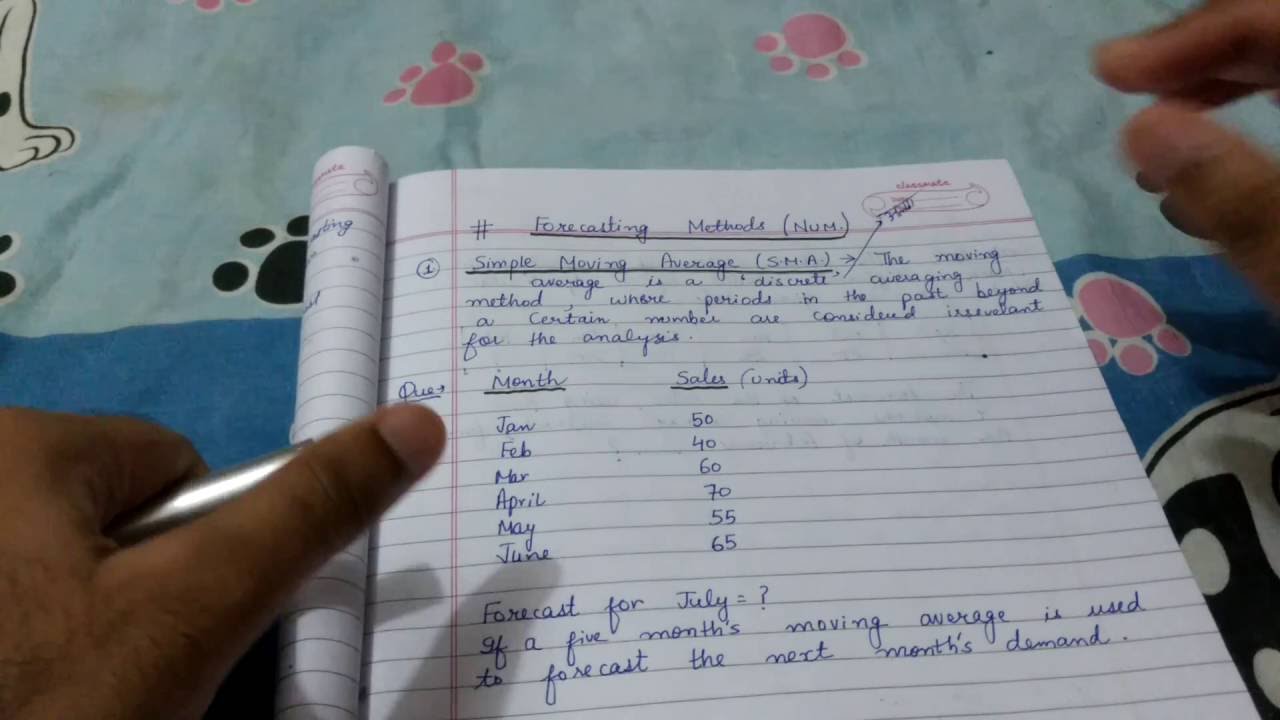 classmate
# Forecasting Methods (NUM.)
① Simple Moving Average (S.M.A.) → The moving
average is a 'discrete' averaging
method, where periods in the past beyond
a certain number are considered irrevelant
for the analysis.
Que→ Month Sales (units)
Jan 50
Feb 40
Mar 60
April 70
May 55
June 65
Forecast for July = ?
If a five month's moving average is used
to forecast the next month's demand.